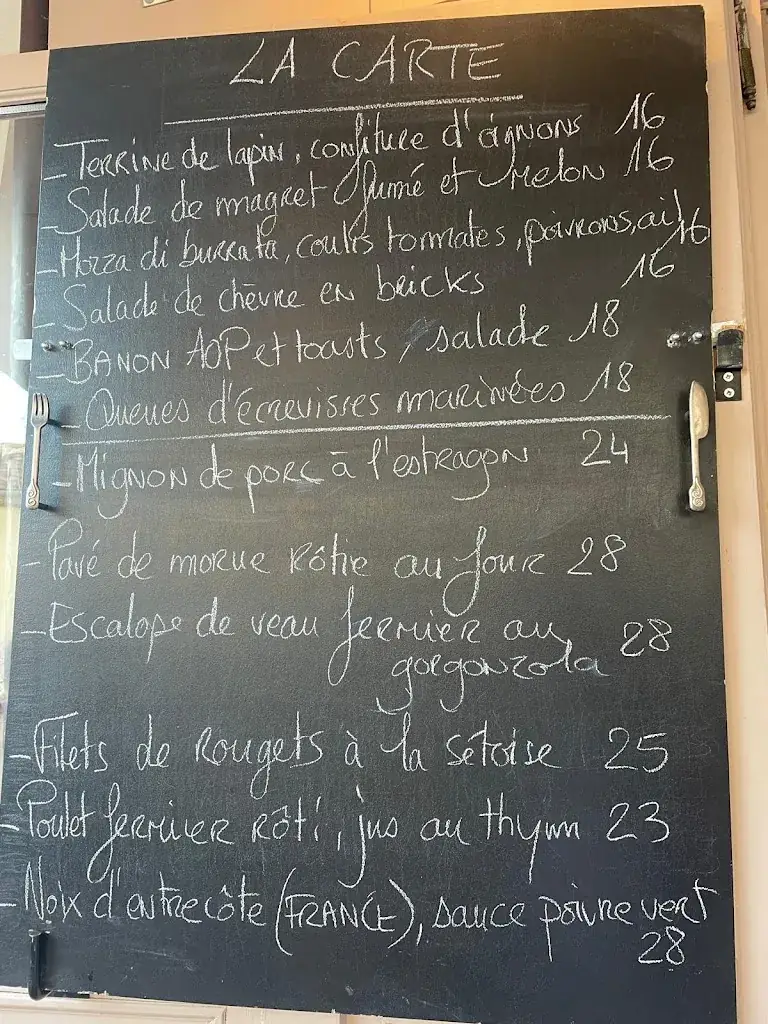 LA CARTE
- Terrine de lapin, confiture d'oignions 16
- Salade de magret fumé et Melon 16
- Mozza di burrata, coulis tomates, poivrons, ail 16
- Salade de chèvre en bricks 16
- BANON AOP et toasts, salade 18
- Queues d'écrevisses marinées 18
- Mignon de porc à l'estragon 24
- Pavé de morue rôtie au four 28
- Escalope de veau fermier au
gorgonzola 28
- Filets de Rougets à la sétoise 25
- Poulet fermier rôti, jus au thym 23
- Noix d'entrecôte (FRANCE), sauce poivre vert
28